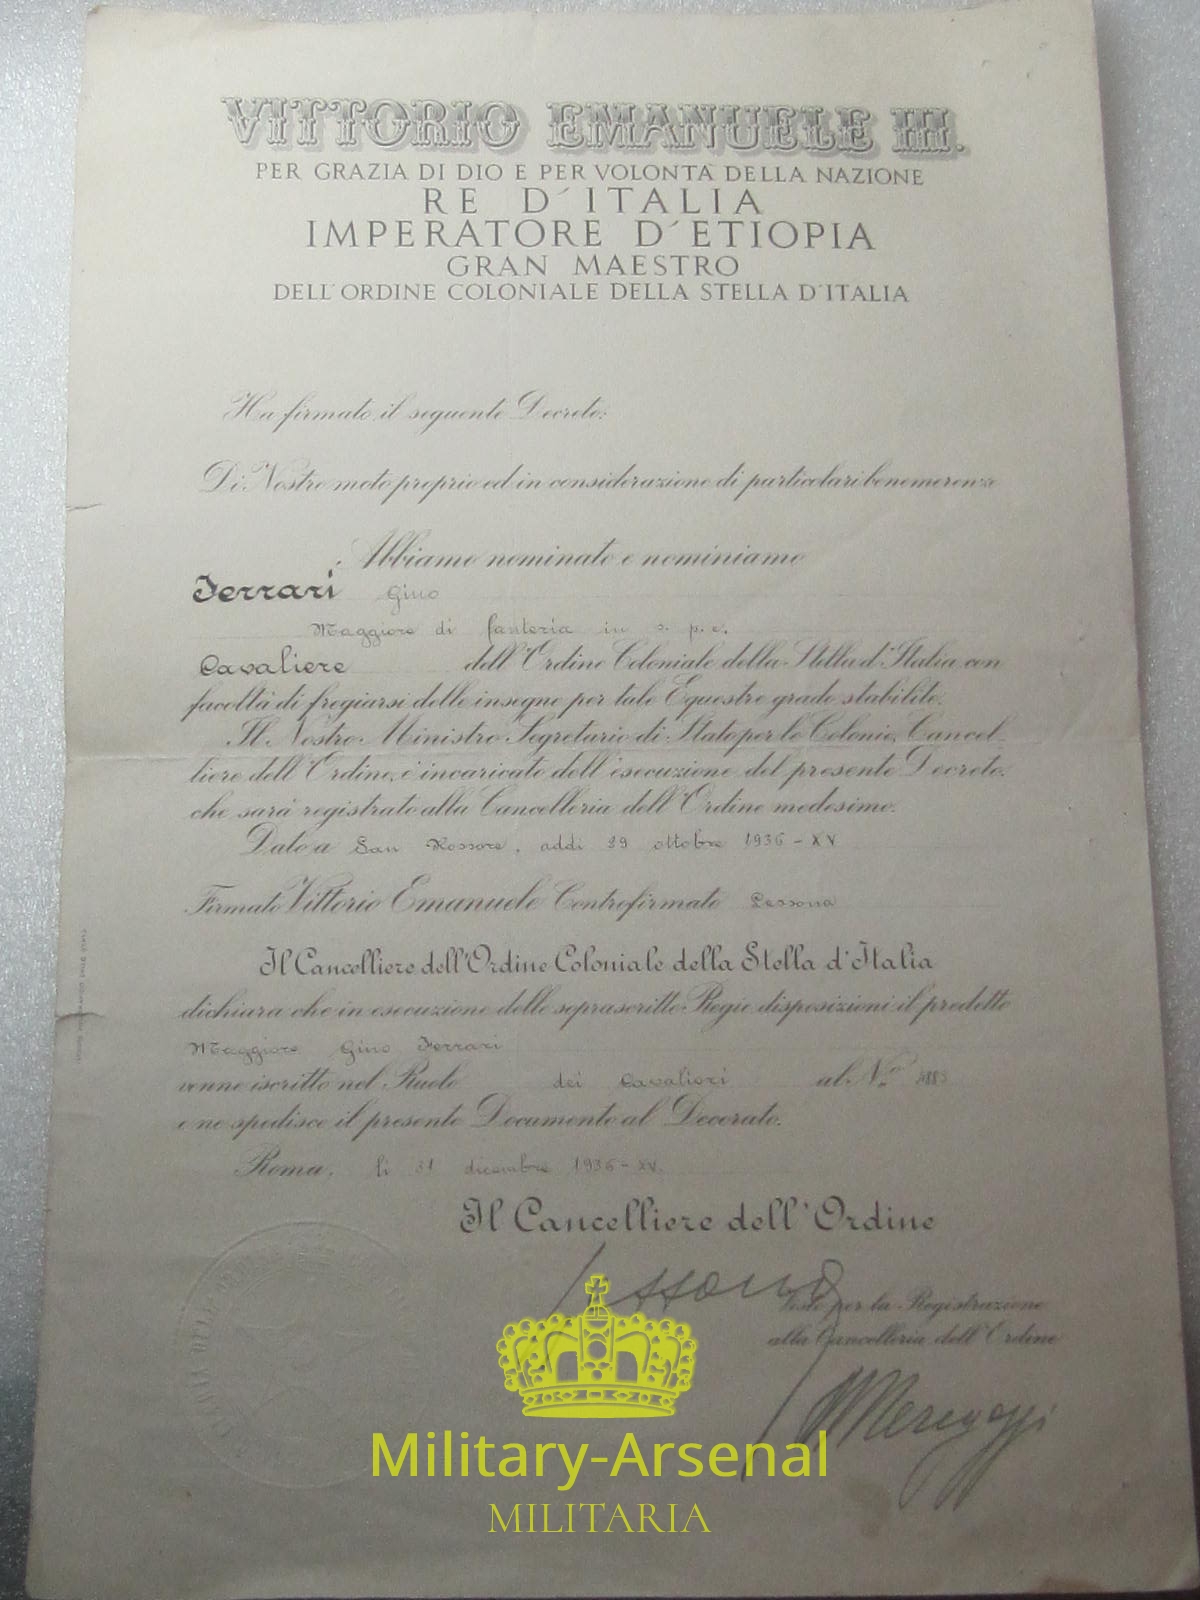 VITTORIO EMANUELE III.
PER GRAZIA DI DIO E PER VOLONTÀ DELLA NAZIONE
RE D'ITALIA
IMPERATORE D'ETIOPIA
GRAN MAESTRO
DELL'ORDINE COLONIALE DELLA STELLA D'ITALIA
Ha firmato il seguente Decreto:
Di Nostro moto proprio ed in considerazione di particolari benemerenze
Abbiamo nominato e nominiamo
Ferrari Gino
Maggiore di fanteria in s. p. e.
Cavaliere dell'Ordine Coloniale della Stella d'Italia con
facoltà di fregiarsi delle insegne per tale Equestre grado stabilite.
Il Nostro Ministro Segretario di Stato per le Colonie, Cancel-
liere dell'Ordine, è incaricato dell'esecuzione del presente Decreto,
che sarà registrato alla Cancelleria dell'Ordine medesimo.
Dato a San Rossore, addì 29 ottobre 1936-XV
Firmato Vittorio Emanuele Controfirmato Lessona
Il Cancelliere dell'Ordine Coloniale della Stella d'Italia
dichiara che in esecuzione delle soprascritte Regie disposizioni il predetto
Maggiore Gino Ferrari
venne iscritto nel Ruolo dei Cavalieri al N.º
e ne spedisce il presente Documento al Decorato.
Roma, lì 31 dicembre 1936-XV.
Il Cancelliere dell'Ordine
Lessona
Visto per la Registrazione
alla Cancelleria dell'Ordine
Military-Arsenal
MILITARIA